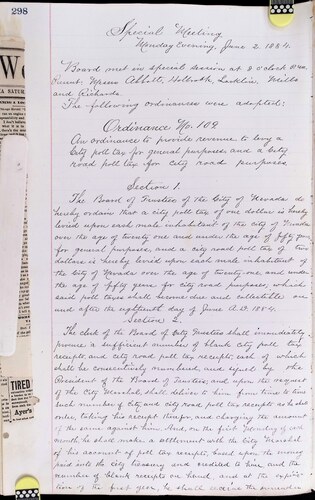 298
Special Meeting
Monday Evening, June 2. 1884.
Board met in special session at 8 o'clock P.M.
Present Messrs Abbott, Holbrook, Mills
and Richards.
The following ordinances were adopted:
Ordinance No. 109
An ordinance to provide revenue to levy a
City poll tax for general purposes and a City
road poll tax for City road purposes
Section 1.
The Board of Trustees of the City of Nevada do
hereby ordain that a city poll tax of one dollar is hereby
levied upon each male inhabitant of the City of Nevada
over the age of twenty one and under the age of fifty years
for general purposes, and a city road poll tax of two
dollars is hereby levied upon each male inhabitant of
the City of Nevada over the age of twenty-one, and under
the age of fifty years for city road purposes, which
said poll taxes shall become due and collectable on
and after the eighteenth day of June A.D. 1884.
Section 2.
The clerk of the Board of City Trustees shall immediately
procure a sufficient number of blank city poll tax
receipts, and city road poll tax receipts, each of which
shall be consecutively numbered, and signed by the
President of the Board of Trustees, and upon the request
of the City Marshal, shall deliver to him from time to time
such number of city and city road poll tax receipts as he shall
order, taking his receipt therefor, and charging the amount
of the same against him. And, on the first Monday of each
month he shall make a settlement with the City Marshal
of his account of poll tax receipts, based upon the money
paid into the city treasury and credited to him, and the
number of blank receipts on hand, and at the
of the first year, he shall
TIRED
Ayer's